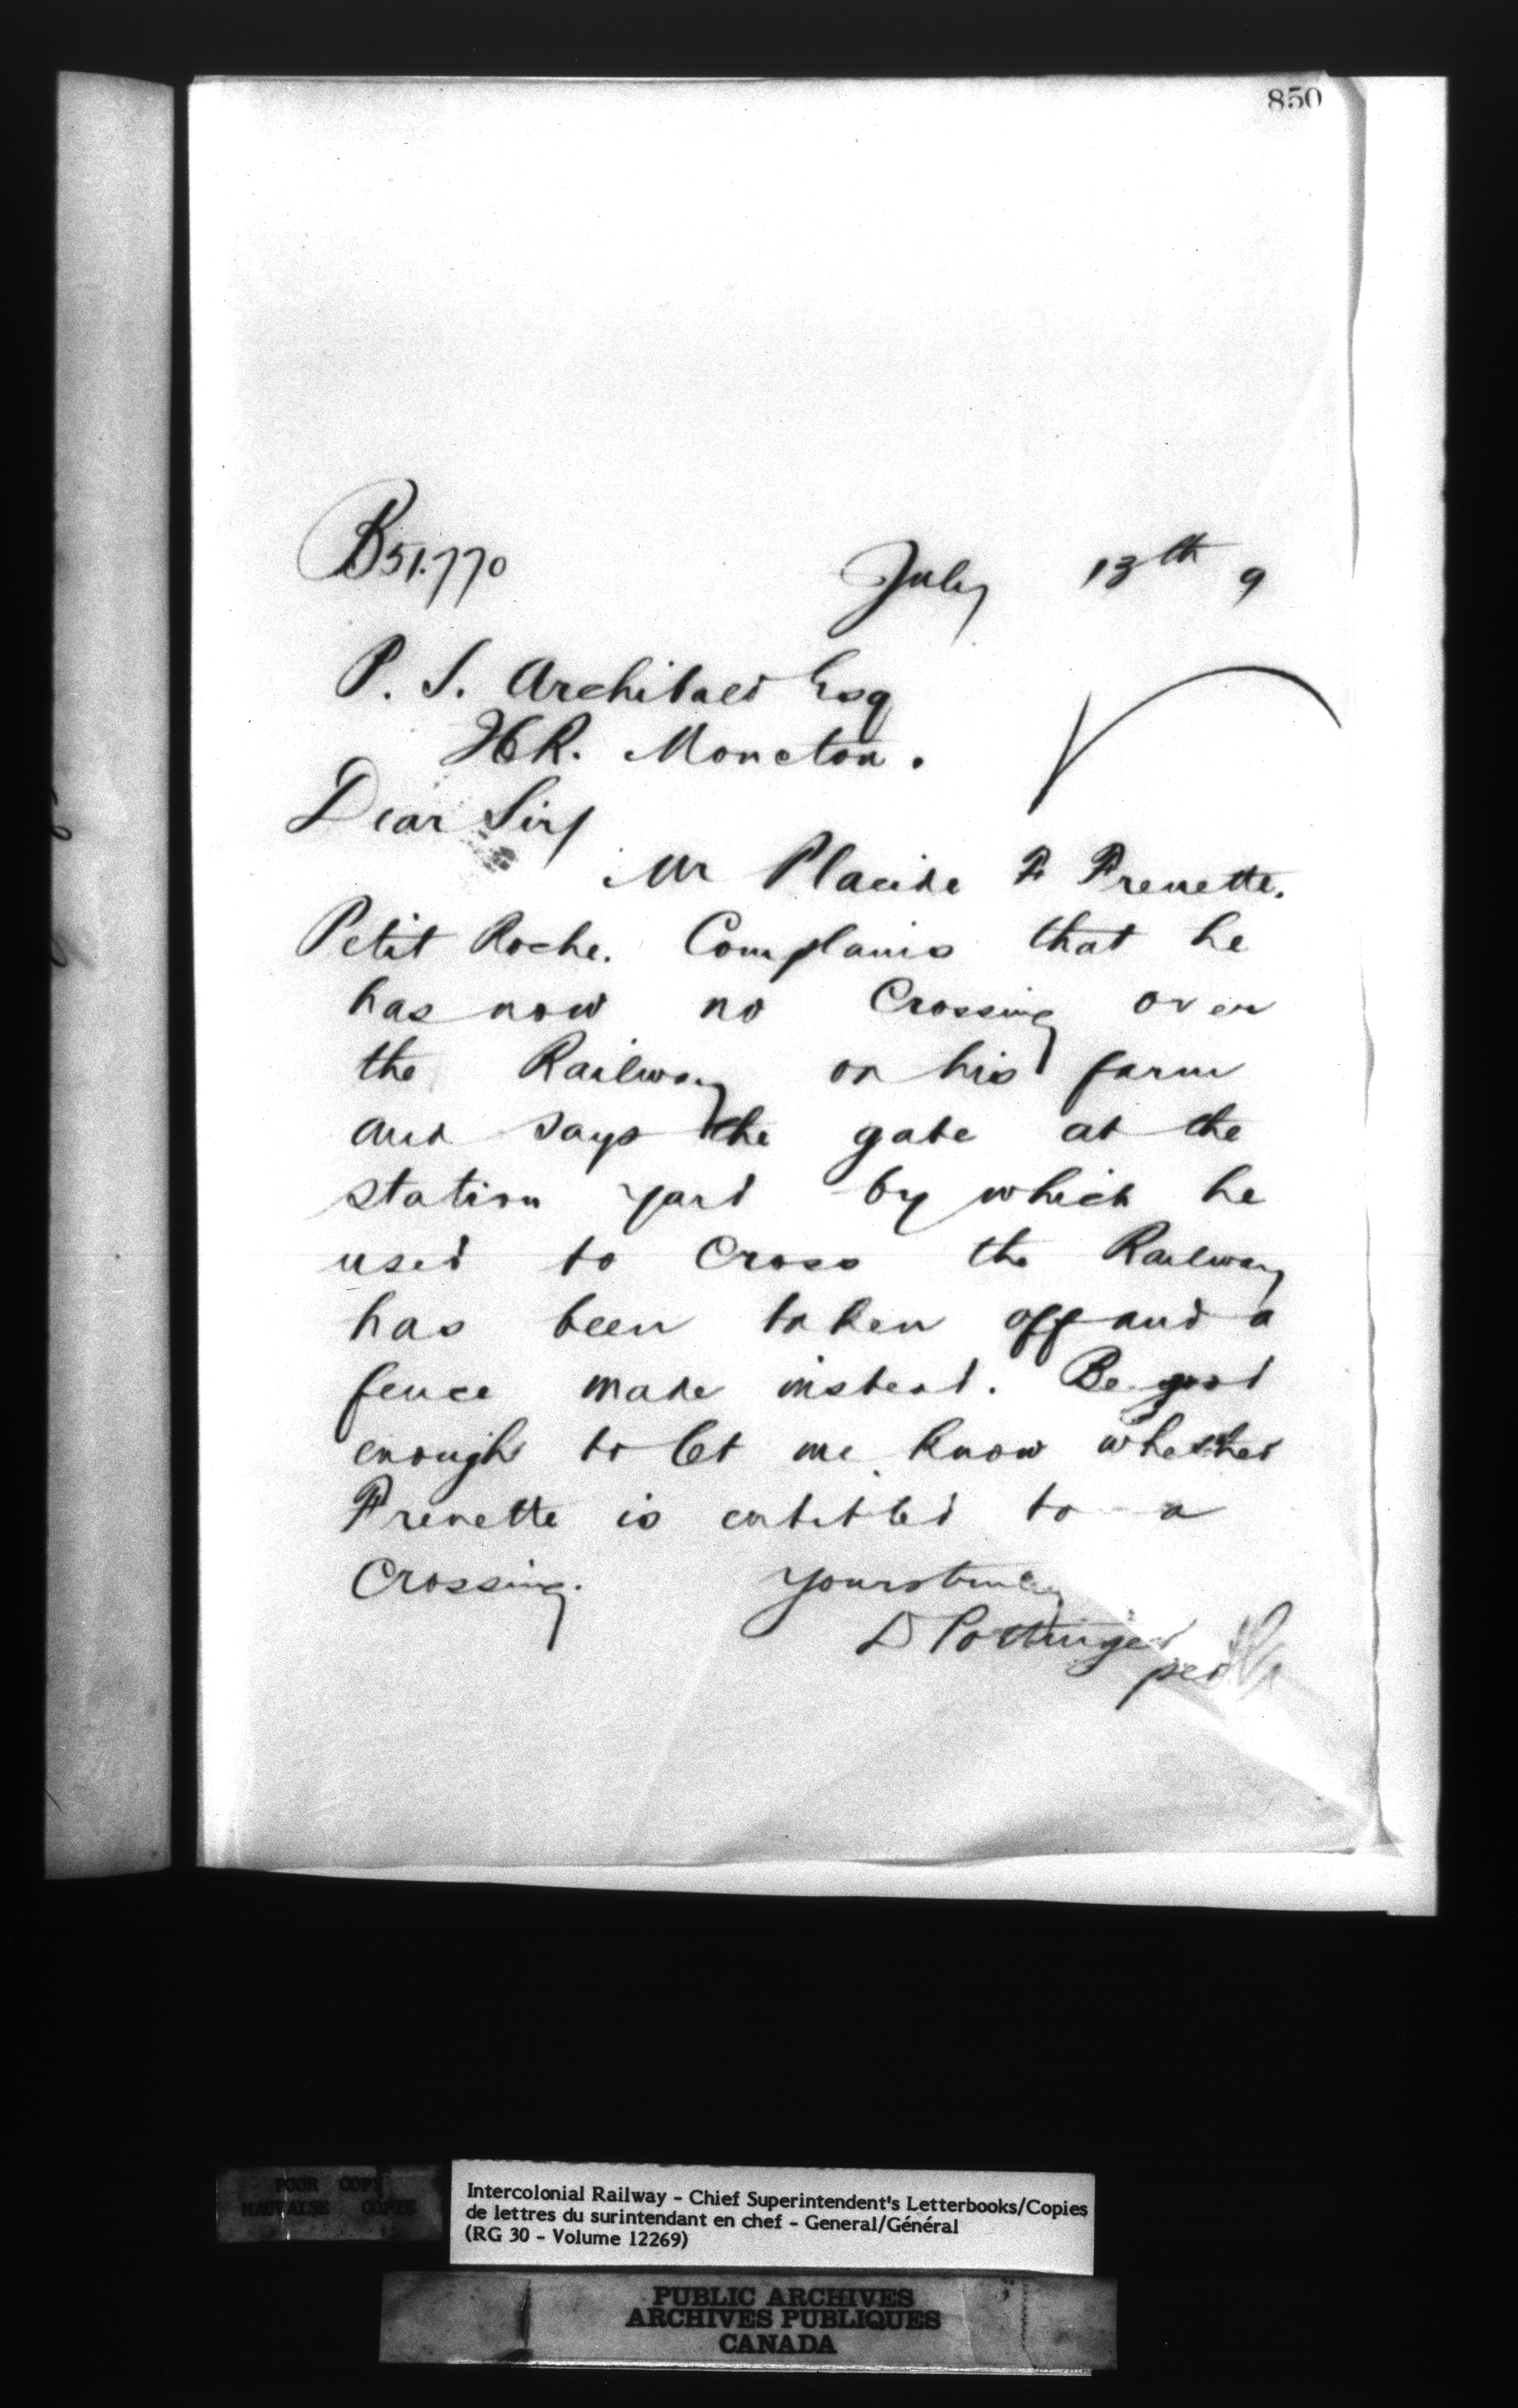 850
B51.770
July 13th 9
P. S. Archibald Esq
Moncton.
Dear Sir/
Mr Placide F Frenette.
Petit Roche. Complains that he
has now no Crossing over
the Railway on his farm
and says the gate at the
station yard by which he
used to Cross the Railway
has been taken off and a
fence made instead. Be good
enough to let me know whether
Frenette is entitled to a
Crossing. Yours truly
D Pottinger
per
POOR COPY
MAUVAISE COPIE
Intercolonial Railway - Chief Superintendent's Letterbooks/Copies
de lettres du surintendant en chef - General/Général
(RG 30 - Volume 12269)
PUBLIC ARCHIVES
ARCHIVES PUBLIQUES
CANADA